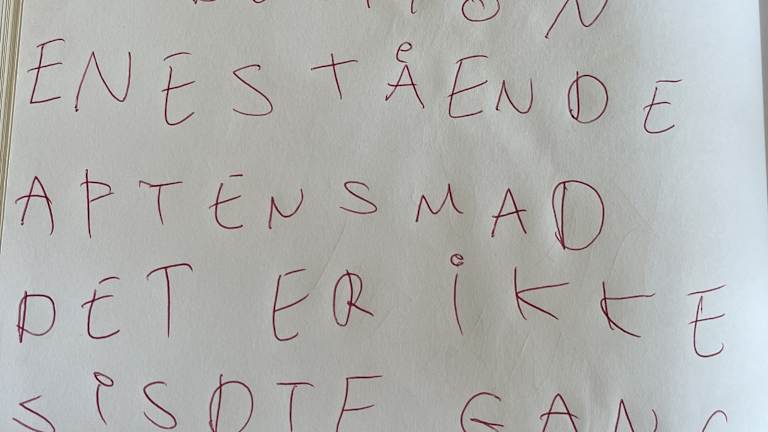 ENESTÅENDE
APTENSMAD
DET ER iKKE
SiSDTE GANG